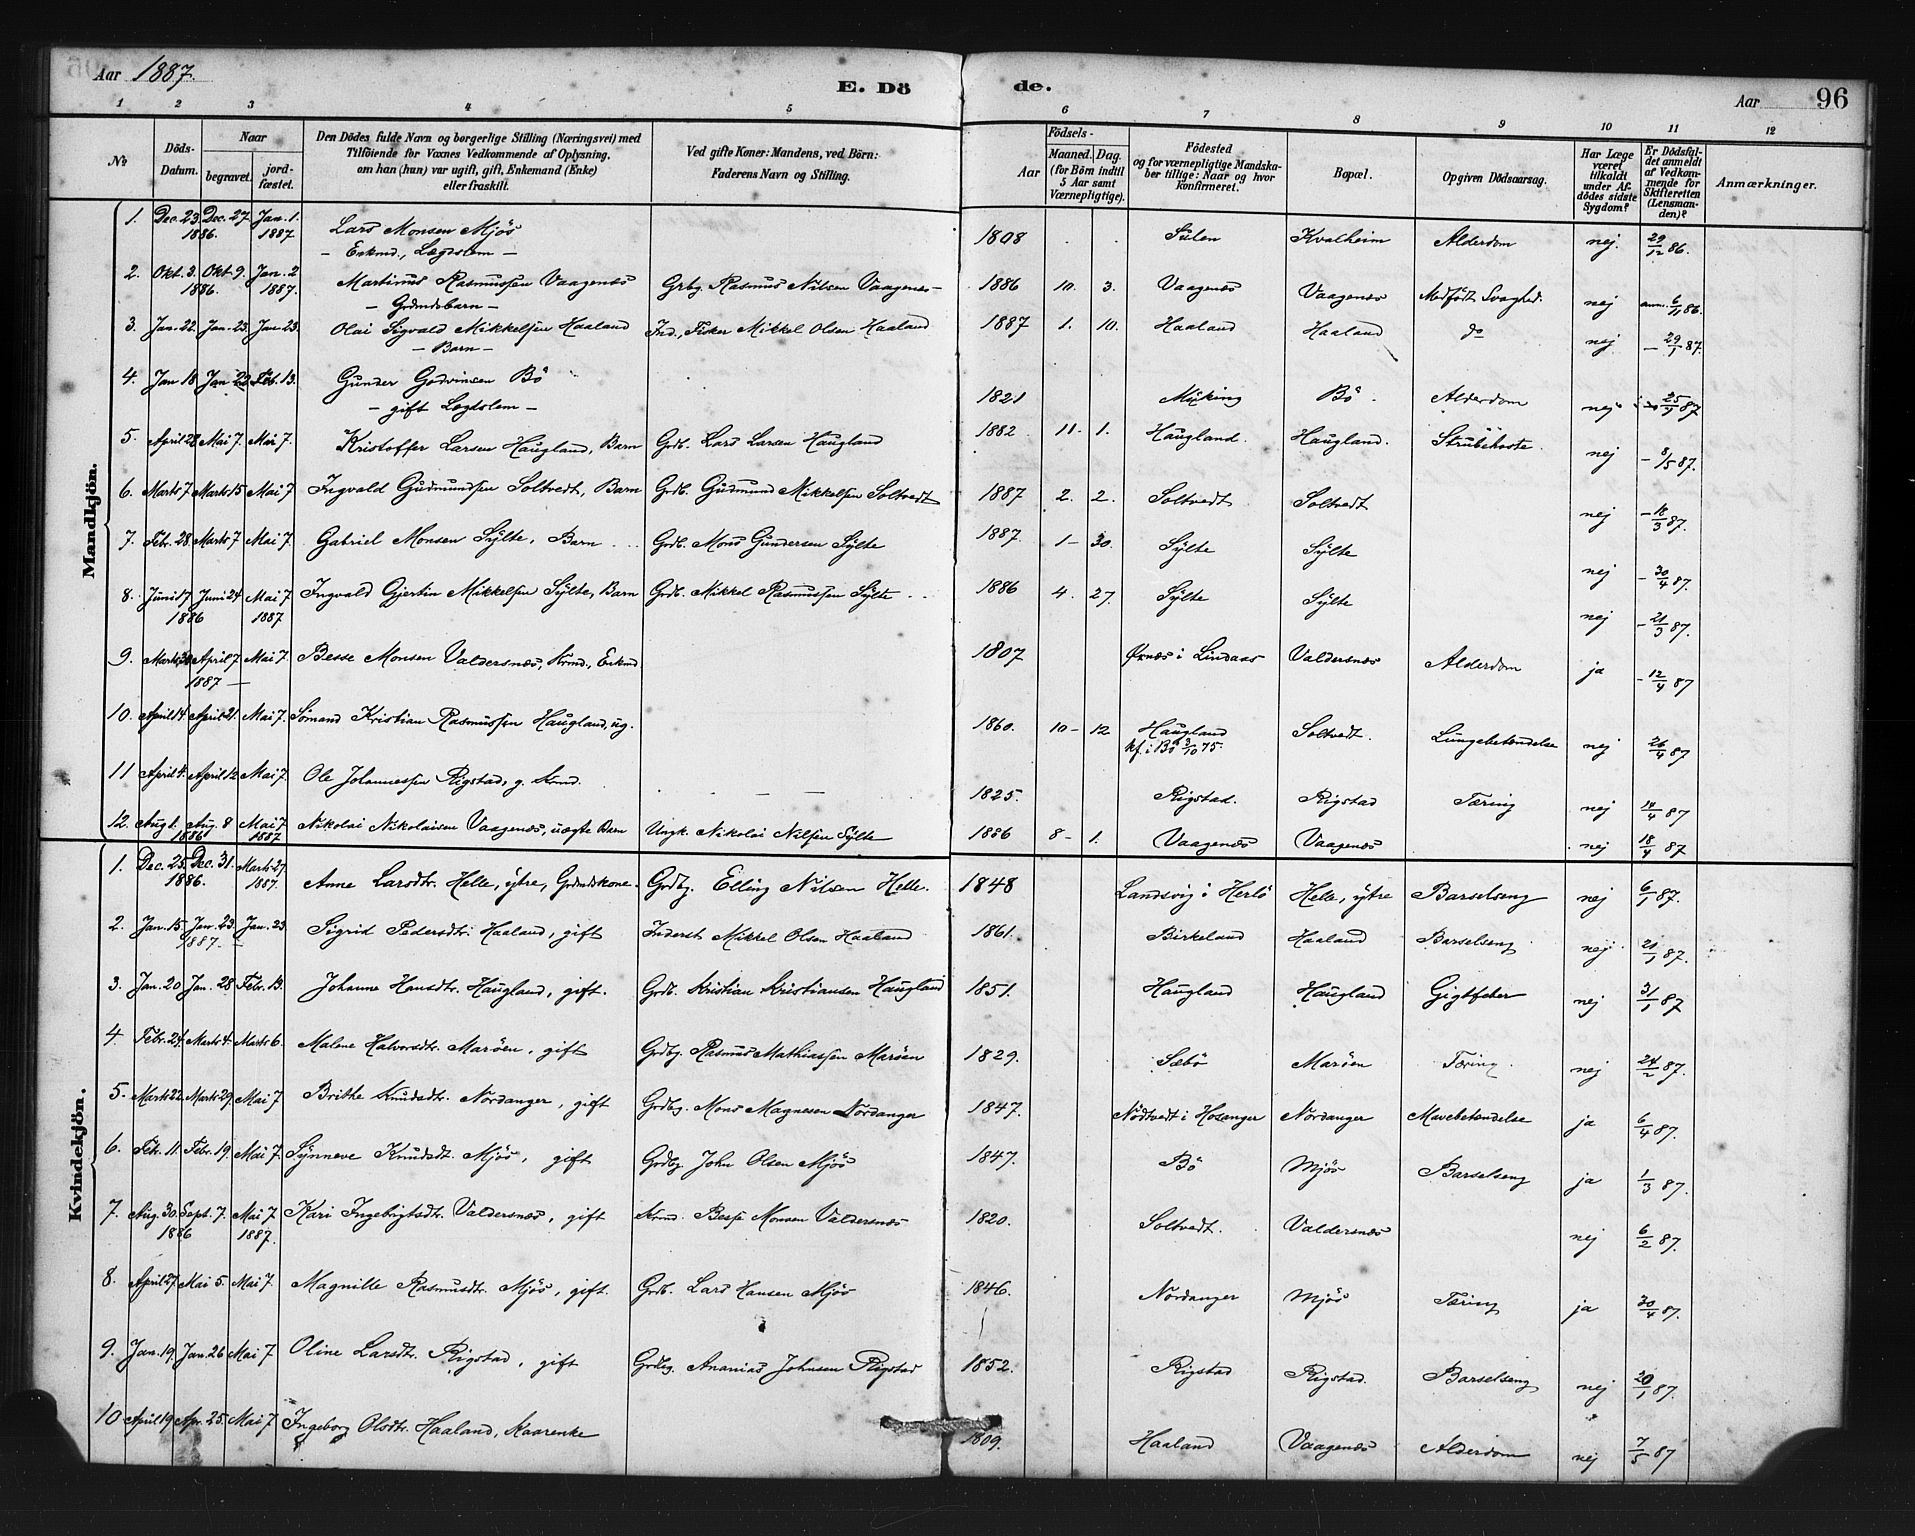 Aar 1887.
E. Dö de.
Aar 96
1 2 3 4 5 6 7 8 9 10 11 12
No
Döds-Datum.
Naar
begravet.
jord-fæstet.
Den Dödes fulde Navn og borgerlige Stilling (Næringsvei) med
Tilföiende for Voxnes Vedkommende af Oplysning,
om han (hun) var ugift, gift, Enkemand (Enke)
eller fraskilt.
Ved gifte Koner: Mandens, ved Börn:
Faderens Navn og Stilling.
Födsels-
Aar
Maaned. Dag.
(for Börn indtil
5 Aar samt
Værnepligtige).
Födested
og for værnepligtige Mandska-
ber tillige: Naar og hvor
konfirmeret.
Bopæl.
Opgiven Dödsaarsag.
Har Læge
været
tilkaldt
under Af-
dödes sidste
Sygdom?
Er Dödsfal-
det anmeldt
af Vedkom-
mende for
Skifteretten
(Lensman-
den)?
Anmærkninger.
Mandkjön.
1. Dec. 23. 1886. Dec. 27 Jan. 1. 1887. Lars Monsen Mjös - Enkmd., Lægdslem - 1808 . . Sülen Kvalheim Alderdom nej. 29/12 86.
2. Okt. 3. 1886. Okt. 9. Jan. 2 1887. Martinus Rasmussen Vaagenæs - Grdmdsbarn - Grbg. Rasmus Nilsen Vaagenæs - 1886 10. 3. Vaagenæs Vaagenæs Medfödt Svaghed. nej anm. 6/1 86.
3. Jan. 22. Jan. 23. Jan. 23. Olai Sigvald Mikkelsen Haaland - Barn - Ind., Fisker Mikkel Olsen Haaland 1887 1. 10. Haaland Haaland do nej - 29/1 87.
4. Jan 18 Jan 22 Feb. 13. Gunder Godvinsen Bö - gift Lægdslem - 1821 Myking Bö. Alderdom nej 25/1 87
5. April 28 Mai 7. Mai 7. Kristoffer Larsen Haugland, Barn Grdb. Lars Larsen Haugland 1882 11. 1. Haugland. Haugland. Strubehoste. nej - 8/5 87.
6. Marts 7 Marts 15 Mai 7 Ingvald Gudmundsen Soltvedt, Barn Grdb. Gudmund Mikkelsen Soltvedt 1887 2. 2. Soltvedt Soltvedt nej - 18/3 87.
7. Febr. 28. Marts 7 Mai 7. Gabriel Monsen Sÿlte, Barn Grdb. Mons Gundersen Sÿlte 1887 1 - 30. Sÿlte Sÿlte nej - 30/4 87.
8. Juni 17 1886 Juni 24 Mai 7 1887 Ingvald Gjertin Mikkelsen Sÿlte, Barn Grdb. Mikkel Rasmussen Sÿlte 1886 4. 27. Sÿlte Sÿlte nej - 21/3 87.
9. Marts 30 April 7 1887 - Mai 7. Besse Monsen Valdersnæs, Krmd, Enkmd 1807 Örnæs i Lindaas Valdersnæs Alderdom ja - 12/4 87
10. April 14 April 21. Mai 7. Sömand Kristian Rasmussen Haugland, ug. 1860. 10 - 12 Haugland kf. i Bö 3/10 75. Soltvedt. Lungebetendelse nej 26/4 87
11 April 4. April 12 Mai 7. Ole Johannessen Rigstad, g. Krmd. 1825. Rigstad. Rigstad Tæring nej 14/4 87
12. Aug 1. 1886 Aug. 8 Mai 7 1887 Nikolai Nikolaisen Vaagenæs, uægte Barn Ungk. Nikolai Nilsen Sÿlte 1886 8 - 1. Vaagenæs Vaagenæs nej 18/4 87
Kvindekjön.
1. Dec. 25. 1886. Dec. 31. Marts 27. 1887. Anne Larsdtr. Helle, ÿtre, Grdmdskone. Grdbg. Elling Nilsen Helle. 1848 Landsvig i Herlö Helle, ÿtre Barselseng nej 6/1 87.
2. Jan. 15. Jan. 23. 1887. - Jan. 23 Sigrid Pedersdtr. Haaland, gift Inderst Mikkel Olsen Haaland 1861. Birkeland Haaland Barselseng nej 21/1 87.
3. Jan. 20 Jan. 28 Febr. 13. Johanne Hansdtr. Haugland, gift. Grdb. Kristian Kristiansen Haugland 1851. Haugland Haugland Gigtfeber nej 31/1 87
4. Febr. 24. Marts 4. Marts 6. Malene Halvorsdtr. Maröen, gift Grdbg. Rasmus Mathiassen Maröen 1829. Sæbö Maröen Tæring. nej 24/2 87.
5. Marts 22. Marts 29. Mai 7 Brithe Knudsdtr. Nordanger, gift Grdbg. Mons Magnesen Nordanger 1847. Nödtvedt i Hosanger Nordanger Mavebetendelse ja 6/4 87.
6. Febr. 11. Febr. 19. Mai 7. Synneve Knudsdt. Mjös, gift Grdbg John Olsen Mjös 1847. Bö Mjös Barselseng ja 1/3 87.
7. Aug. 30. 1886 Sept. 7. Mai 7 1887. Kari Ingebrigtsdtr. Valdersnæs, gift Krmd. Besse Monsen Valdersnæs 1820. Soltvedt. Valdersnæs nej 6/2 87.
8. April 27. Mai 5. Mai 7. Magnille Rasmusdtr. Mjös, gift. Grdb. Lars Hansen Mjös 1846. Nordanger Mjös Tæring ja 30/4 87.
9. Jan. 19. Jan. 26 Mai 7 Oline Larsdtr. Rigstad, gift Grdbg. Ananias Johnsen Rigstad 1852. Rigstad Rigstad. Barselseng nej 20/1 87.
10 April 19 Apr. 25. Mai 7 Ingeborg Olsdtr. Haaland, Kaarenke 1809. Haaland Vaagenæs Alderdom nej 7/5 87